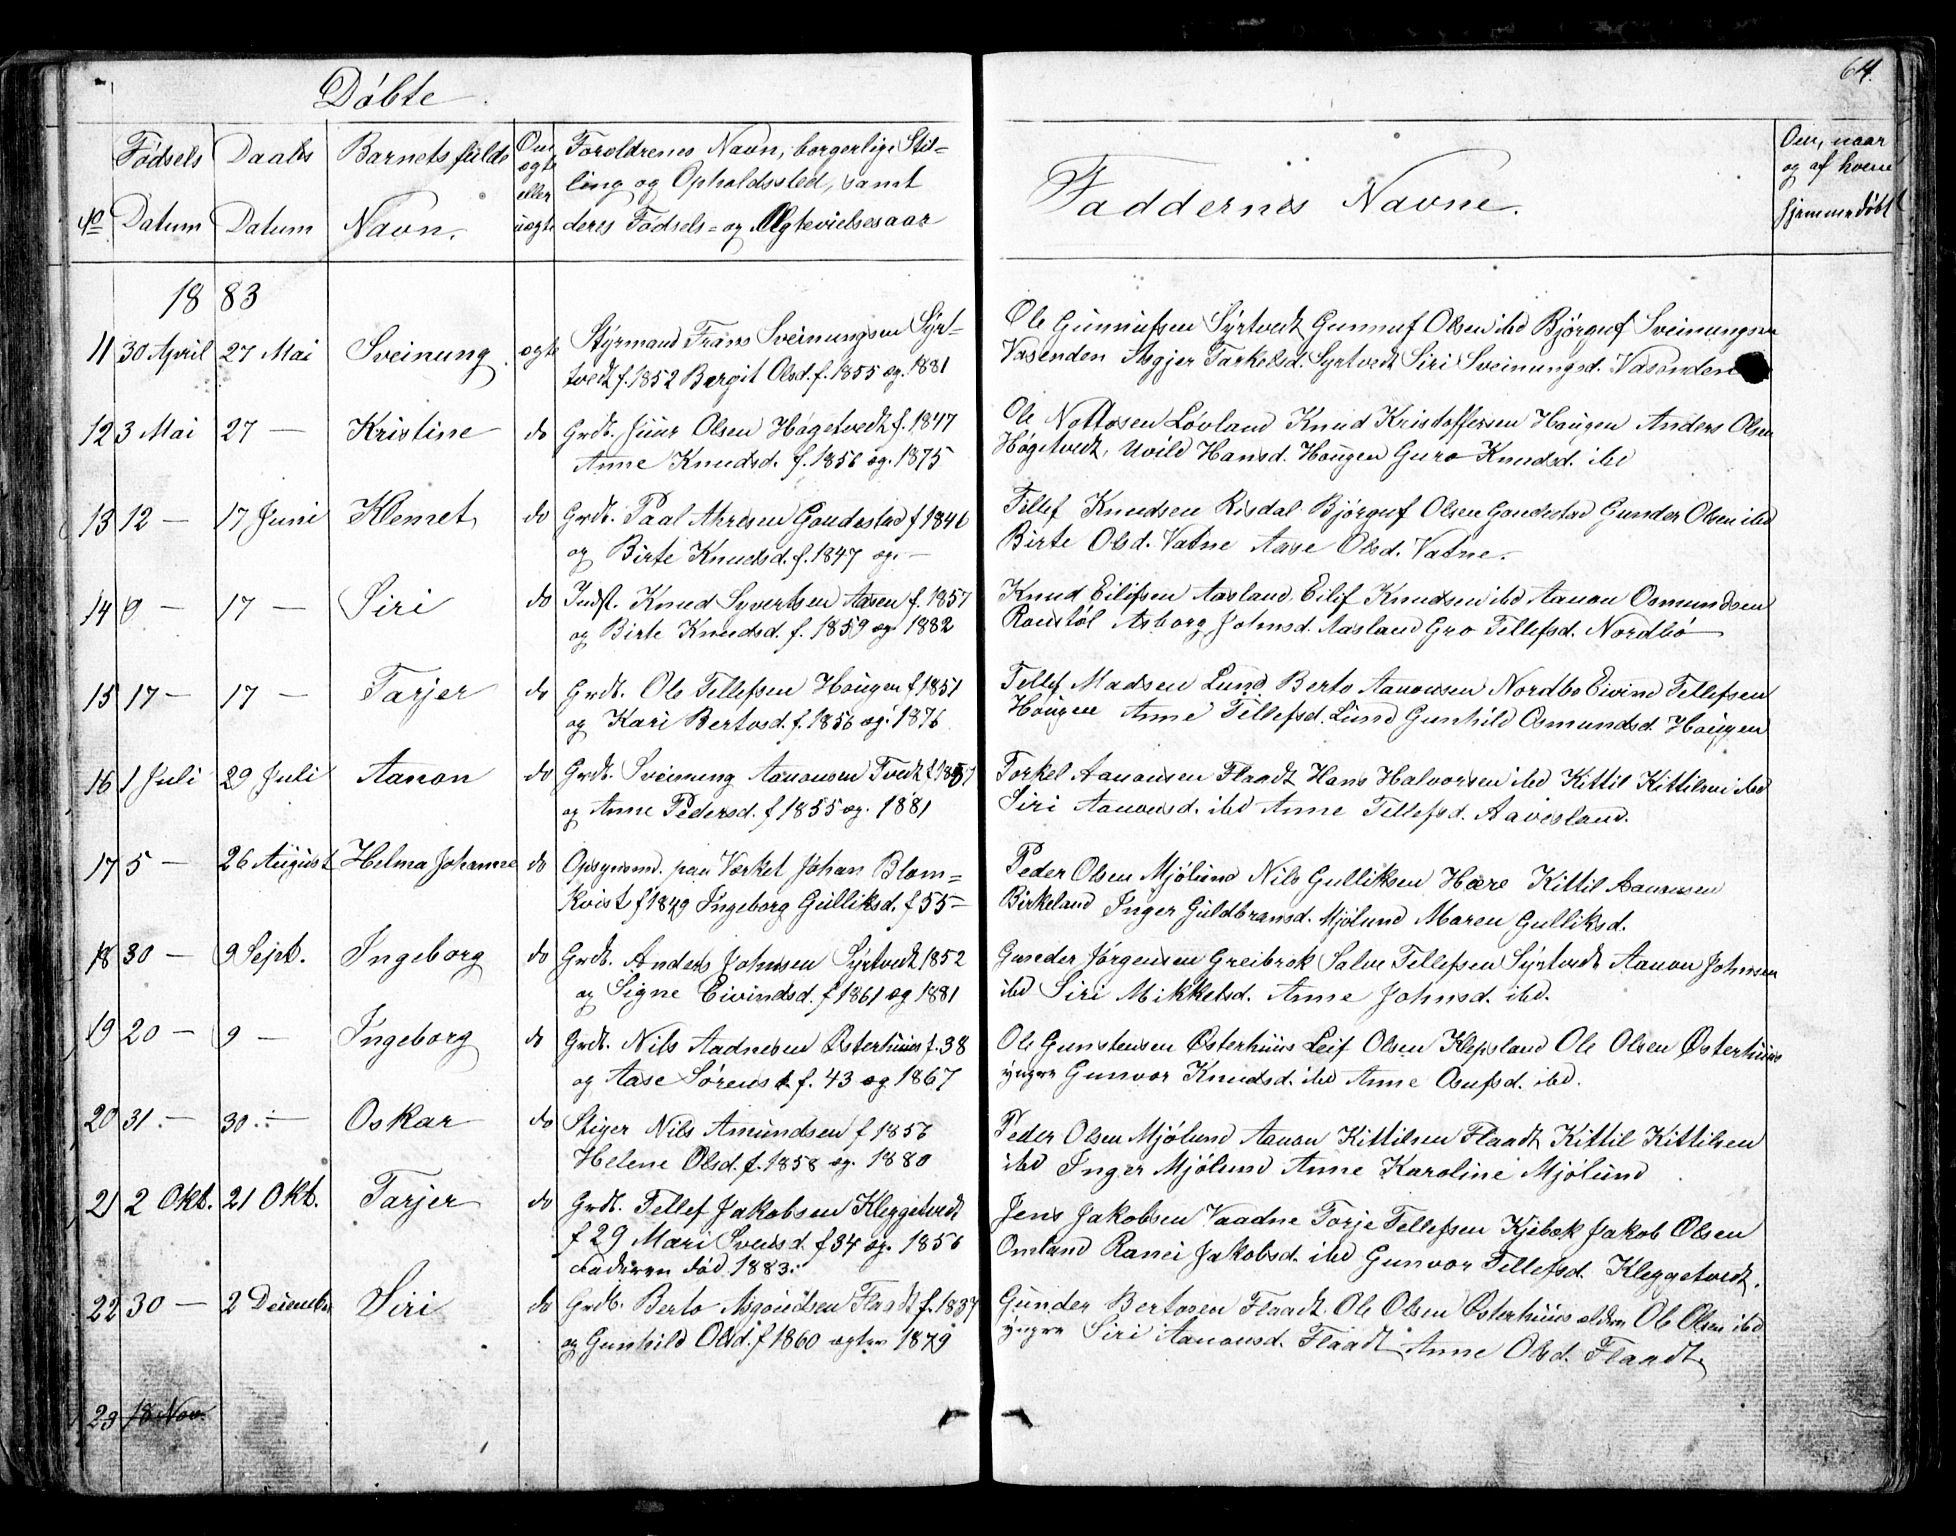 64.
Döbte.
No
Födsels Datum
Daabs Datum
Barnets fulde Navn.
Om ægte eller uægte
Forældrenes Navn, borgerlige Stil-
ling og Opholdssted, samt
deres Födsels- og Ægtevielsesaar
Faddernes Navne.
Om, naar
og af hvem
hjemmedöbt
1883
11 30 April 27 Mai Sveinung. ægte Styrmand Frans Sveinungsen Syrt-
tvedt f. 1852 Bergit Olsd. f. 1855 æg. 1881
Ole Gunnufsen Syrtvedt Gunnuf Olsen ibd Björguf Sveinungsen
Vasenden Asgjer Tarkelsd. Syrtvedt Siri Sveinungsd. Vasenden
12 3 Mai 27 — Kristine do Grdb. Juur Olsen Högetvedt f. 1847
Anne Knudsd. f. 1856 æg. 1875
Ole Nottosen Lövland Knud Kristoffersen Hougen Anders Olsen
Högetvedt, Uvild Hansd. Hougen Guro Knudsd. ibd
13 12 — 17 Juni Klemet do Grdb. Paal Ahresen Goudestad f 1846
og Birte Knudsd. f. 1847 æg. —
Tellef Knudsen Risdal Björguf Olsen Goudestad Gunder Olsen ibd
Birte Olsd. Vatne Aase Olsd. Vatne.
14 9 — 17 — Siri do Indst. Knud Syvertsen Aasen f. 1857
og Birte Knudsd. f. 1859 æg. 1882
Knud Eilifsen Aasland, Eilif Knudsen ibd Aanon Osmundsen
Rouståöl Asborg Johnsd. Aasland Gro Tellefsd. Nordbö
15 17 — 17 — Tarjer do Grdb. Ole Tellefsen Hougen f 1851
og Kari Bertosd. f. 1856 æg. 1876
Tellef Madsen Lund Berto Aanonsen Nordbo Eivind Tellefsen
Hougen Anne Tellefsd. Lund Gunhild Osmundsd. Hougen
16 1 Juli 29 Juli Aanon do Grdb. Sveinung Aanonsen Tvedt f 1857
og Anne Pedersd. f 1855 æg. 1881
Torkel Aanonsen Flaadt Hans Halvorsen ibd Kittil Kittilsen ibd
Siri Aanonsd. ibd Anne Tellefsd. Aavesland.
17 5 — 26 August Helma Johanne do Opsynsmd. paa Værket Johan Blom-
kvist f 1849 Ingeborg Gulliksd. f 55 —
Peder Olsen Mjölund Nils Gulliksen Hære Kittil Aanonsen
Birkeland Inger Guldbransd. Mjölund Maren Gulliksd.
18 30 — 9 Sept. Ingeborg do Grdb. Anders Johnsen Syrtvedt 1852
og Signe Eivindsd. f 1861 æg 1881
Gunder Jörgensen Greibrok Salve Tellefsen Syrtvedt Aanon Johnsen
ibd Siri Mikkelsd. Anne Johnsd. ibd.
19 20 — 9 — Ingeborg do Grdb. Nils Aadnesen Österhuus f. 38
og Aase Sörensd. f. 43 æg 1867
Ole Gunstensen Österhuus Leif Olsen Klepsland Ole Olsen Österhuus
yngre Gunvor Knudsd. ibd Anne Osufsd. ibd.
20 31. — 30. — Oskar do Stiger Nils Amundsen f 1856
Helene Olsd. f. 1858 æg. 1880
Peder Olsen Mjölund Aanon Kittilsen Flaadt Kittil Kittilsen
ibd Inger Mjölund Anne Karoline Mjölund
21 2 Okt. 21 Okt. Tarjer do Grdb. Tellef Jakobsen Kleggetvedt
f 29 Mari Svensd. f 34 æg. 1856
Faderen död 1883.
Jens Jakobsen Vaadne Torje Tellefsen Kjebæk Jakob Olsen
Omland Ranei Jakobsd. ibd Gunvor Tellefsd. Kleggetvedt.
22 30 — 2 Desember Siri do Grdb. Berto Asgoudsen Flaadt f. 1837
og Gunhild Olsd. f 1860 ægtev 1879
Gunder Bertosen Flaadt. Ole Olsen Österhuus ældre Ole Olsen ibd
yngre Siri Aanonsd. Flaadt, Anne Olsd. Flaadt.
23 18 Nov.